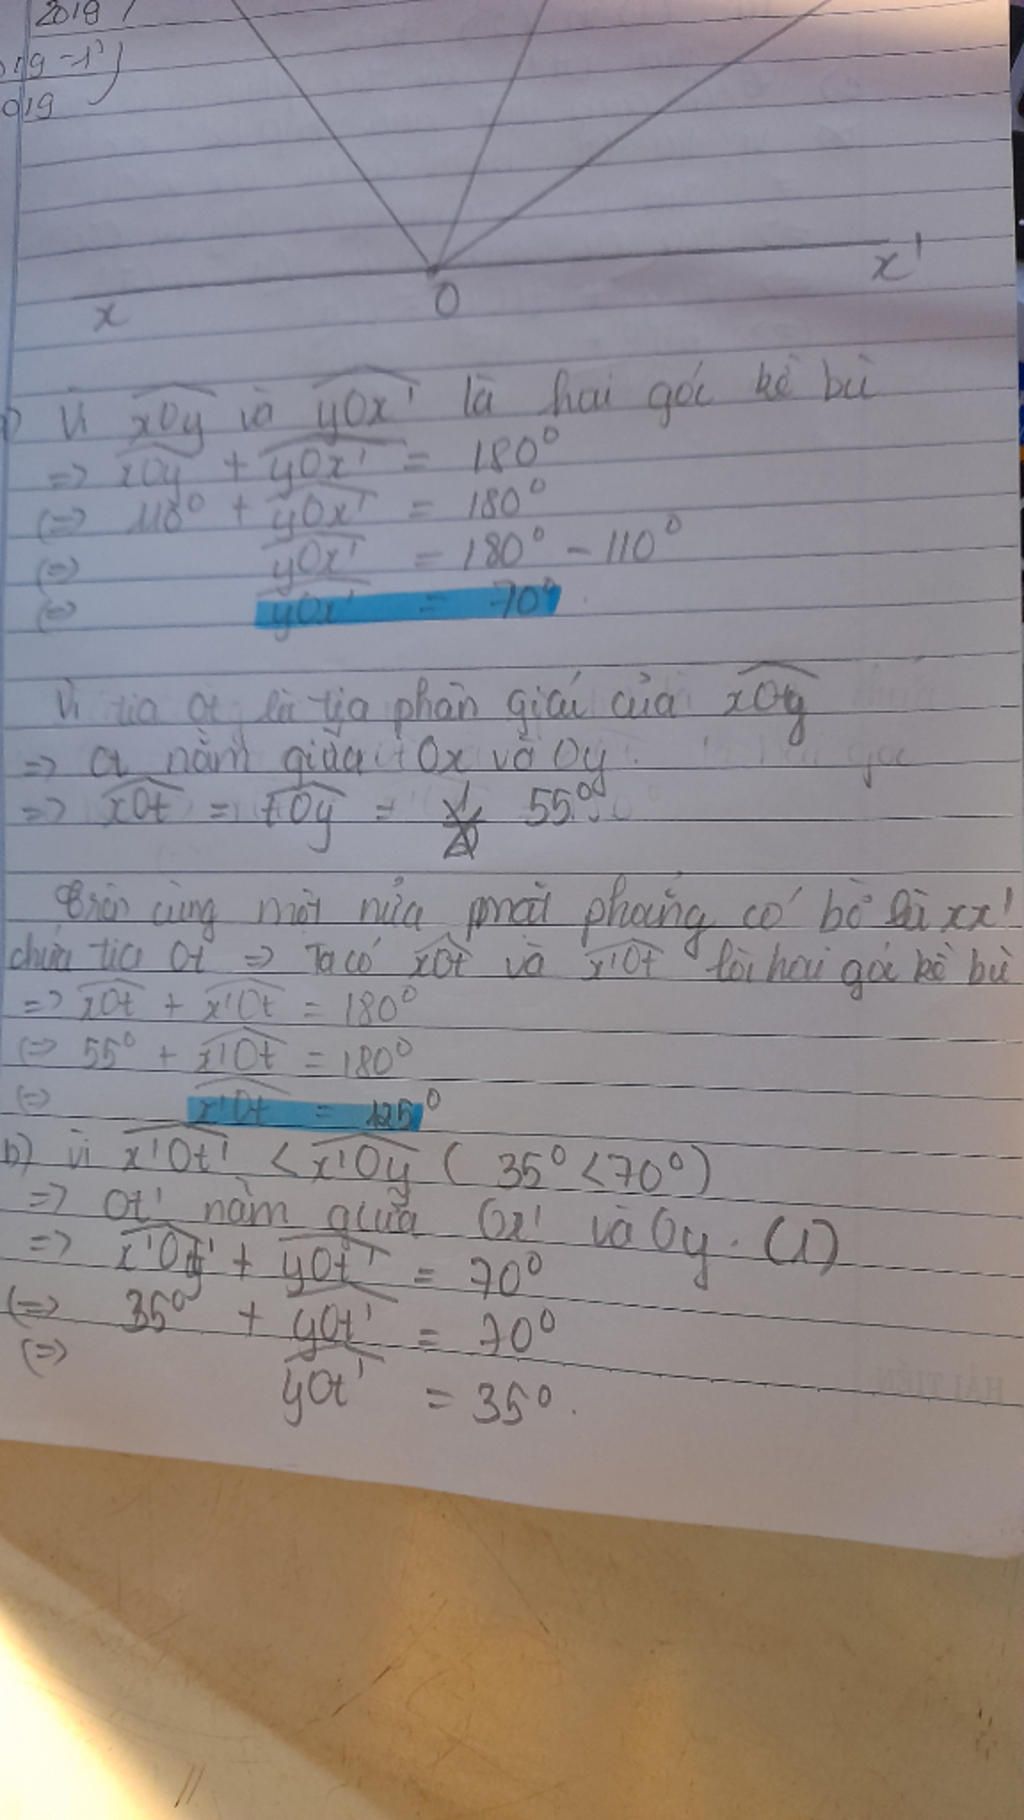 2019
019
x
O
x'
Vì xOy và yOx' là hai góc kề bù
=> xOy + yOx' = 180°
(=> 110° + yOx' = 180°
(=> yOx' = 180° - 110°
(=> yOx' = 70°
Vì tia Ot là tia phân giác của xOy
=> Ot nằm giữa Ox và Oy
=> xOt = tOy = 55°
Trên cùng một nửa mặt phẳng có bờ là xx'
chứa tia Ot => Ta có xOt và x'Ot là hai góc kề bù
=> xOt + x'Ot = 180°
(=> 55° + x'Ot = 180°
(=> x'Ot = 125°
b) Vì x'Ot' < x'Oy ( 35° < 70° )
=> Ot' nằm giữa Ox' và Oy. (1)
=> x'Ot' + yOt' = 70°
(=> 35° + yOt' = 70°
(=> yOt' = 35°.